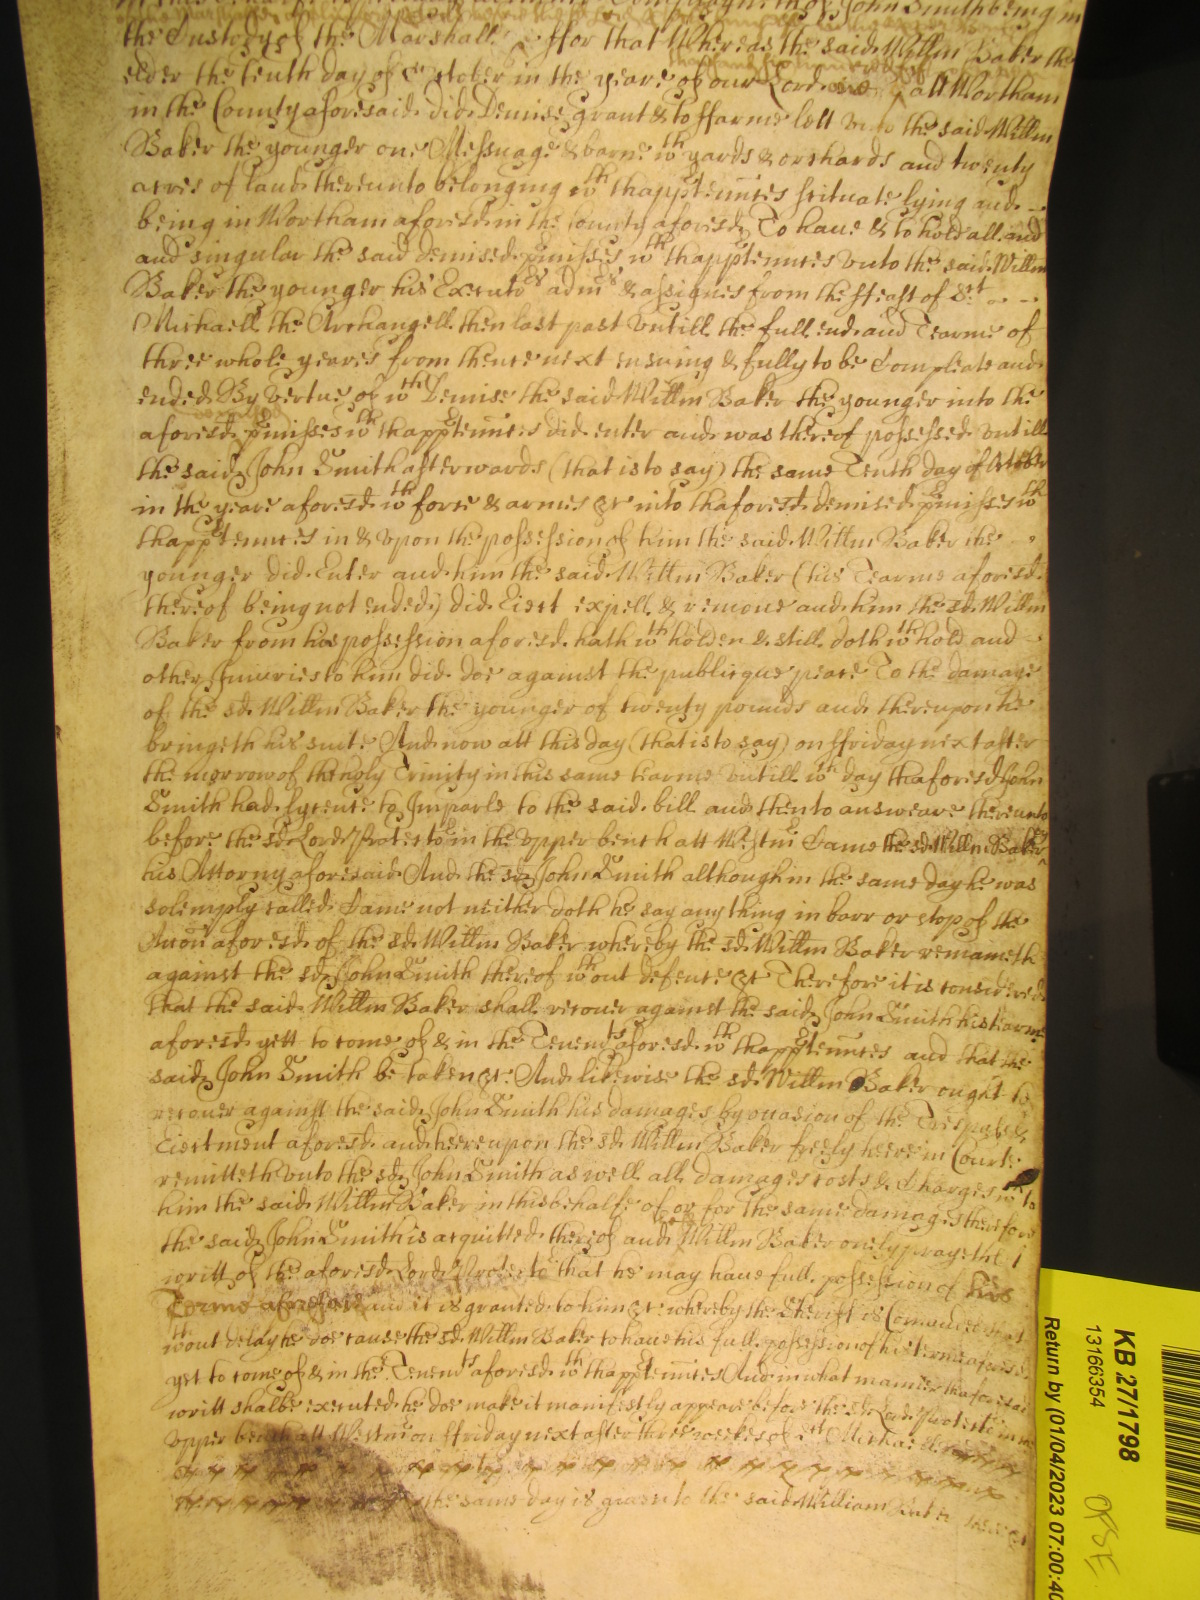 John Smith being in
the Custody of the Marshall ffor that Whereas the said Willm Baker the
elder the tenth day of October in the yeare of our Lord att Wortham
in the County aforesaid did Demise grant & to ffarme lett unto the said Willm
Baker the younger one Messuage & barne wth yards & orchards and twenty
acres of land thereunto belonging wth thapptennces scituate lying and
being in Wortham aforesd in the County aforesd To have & to hold all and
and singular the said demised pmisses wth thapptennces unto the said Willm
Baker the younger his Executors admrs & assignes from the ffeast of St
Michaell the Archangell then last past untill the full end and Tearme of
three whole yeares from thence next ensuing & fully to be Compleate and
ended By vertue of wch Demise the said Willm Baker the younger into the
aforesd pmisses wth thapptennces did enter and was thereof possessed untill
the said John Smith afterwards (that is to say) the same Tenth day of October
in the yeare aforesd wth force & armes &c into thaforesd demised pmisses wth
thapptennces in & upon the possession of him the said Willm Baker the
younger did Enter and him the said Willm Baker (his Tearme aforesd
thereof being not ended) did Eiect expell & remove and him the sd Willm
Baker from his possession aforesd hath wth holden & still doth wth hold and
other Iniuries to him did doe against the publicque peace To the damage
of the sd Willm Baker the younger of twenty pounds and thereupon he
bringeth his suite And now att this day (that is to say) on ffriday next after
the morrow of the holy Trinity in this same tearme untill wch day thaforesd John
Smith had lycence to Imparle to the said bill and then to answeare thereunto
before the sd Lord Protector in the upper bench att Westmr Came the sd Willm Baker by
his Attorny aforesaid And the sd John Smith although in the same day he was
solemply called Came not neither doth he say any thing in barr or stop of the
Accon aforesd of the sd Willm Baker whereby the sd Willm Baker remaineth
against the sd John Smith thereof wthout defence &c Therefore it is considered
that the said Willm Baker shall recover against the said John Smith his tearme
aforesd yett to come of & in the Tenemts aforesd wth thapptennces and that the
said John Smith be taken &c And likewise the sd Willm Baker ought to
recover against the said John Smith his damages by occasion of the Trespas &
Eiectment aforesd and hereupon the sd Willm Baker freely heere in Court
remitteth unto the sd John Smith as well all damages costs & Charges
him the said Willm Baker in this behalfe of or for the same damages therefore
the said John Smith is acquitted thereof and Willm Baker onely prayeth
writt of the aforesd Lord Protector that he may have full possession of his
Terme aforesaid and it is granted to him &c whereby the Sheriff is Comanded that
wthout delay he doe cause the sd Willm Baker to have his full possession of his terme aforesd
yet to come of & in the Tenemts aforesd wth thapptennces And in what manner thaforesaid
writt shalbe executed he doe make it manifestly appeare before the sd Lord Protector in the
upper bench att Westmr on ffriday next after three weekes of St Michael
the same day is given to the said William Baker
KB 27/1798
13166354
Return by (01/04/2023 07:00:40